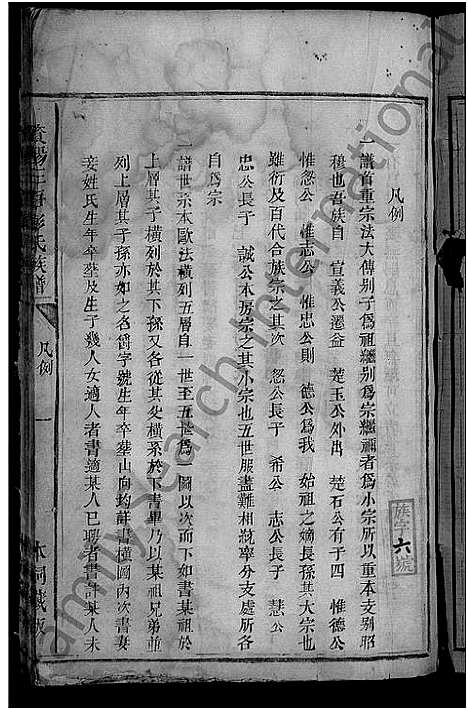 凡例
一譜首重宗法大傳别子爲祖繼别爲宗繼禰者爲小宗所以重本支别昭
穆也吾族自 宣義公遷益 楚玉公外出 楚石公有子四 惟德公
惟忽公 惟志公 惟忠公則 德公爲我 始祖之嫡長孫其大宗也
雖衍及百代合族宗之其次 忽公長子 希公 志公長子 慧公
忠公長子 誠公本房宗之其小宗也五世服盡難相統率分支處所各
自爲宗
一譜世系本歐法横列五層自一世至五世爲一圖以次而下如書某祖於
上層其子横列於其下孫又各從其父横系於下書畢乃以某祖兄弟並
列上層其子孫亦如之名諱字號生年卒塟山向均註書横圖内次書妻
妾姓氏生年卒塟及生子幾人女適人者書適某人已聘者書許某人未
彭氏族譜
凡例
一
木洞藏版
族字
六號
Family Search International